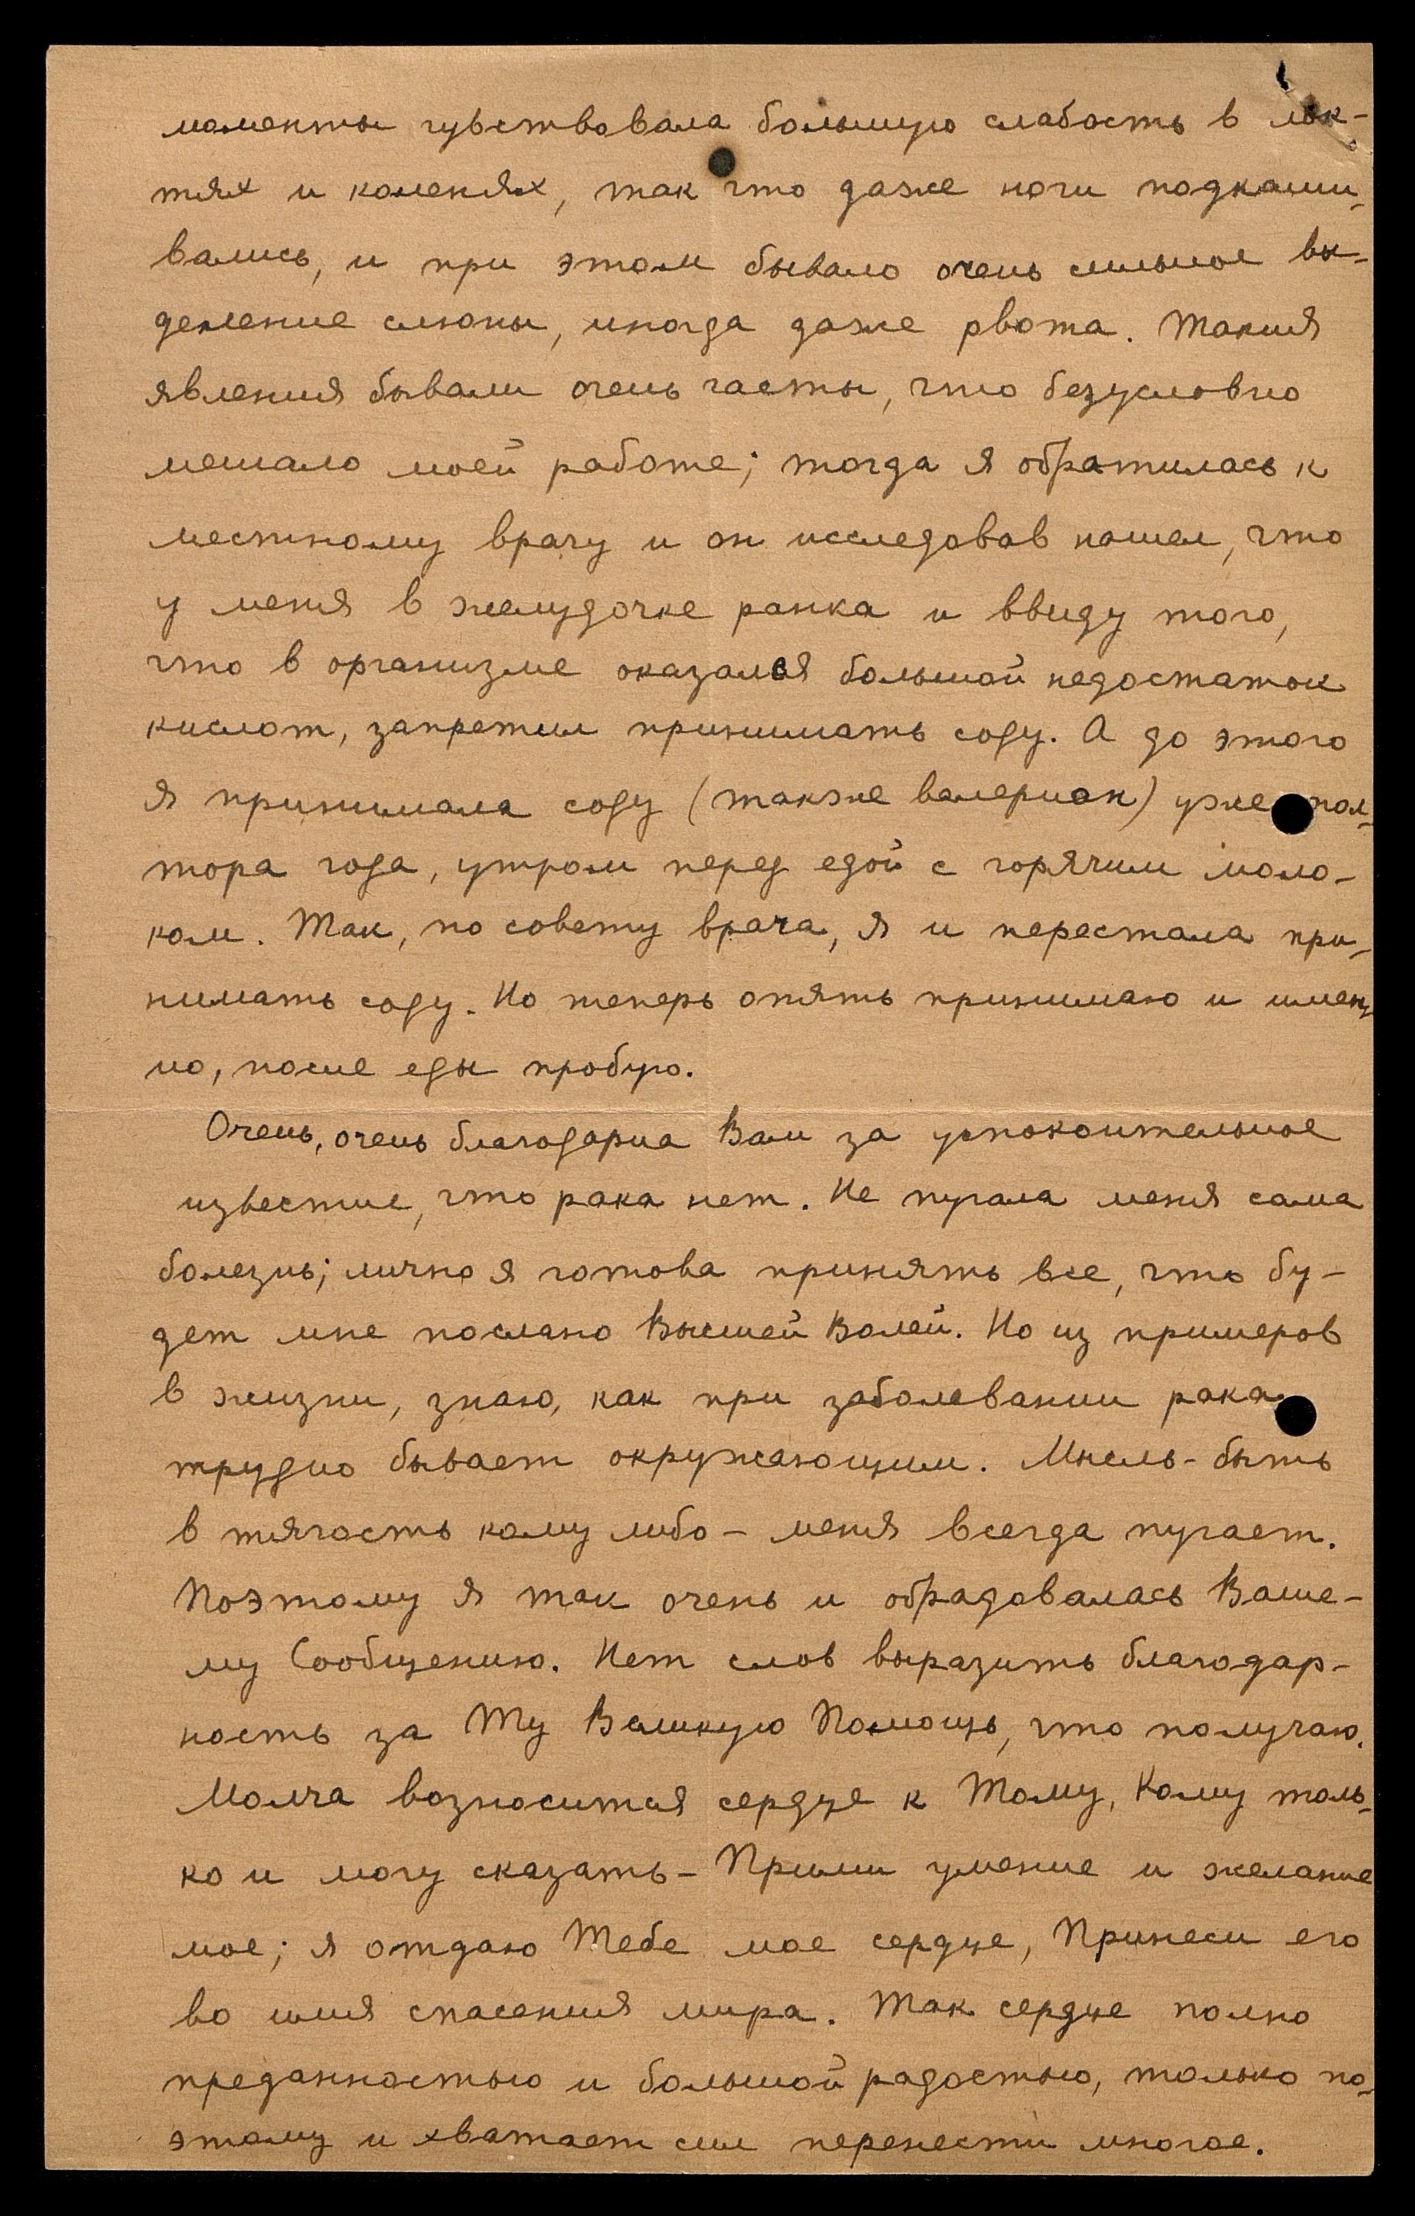 моменты чувствовала большую слабость в лок-
тях и коленях, так что даже ноги подкаши-
вались, и при этом бывало очень сильное вы-
деление слюны, иногда даже рвота. Такия
явления бывали очень часты, что безусловно
мешало моей работе; тогда я обратилась к
местному врачу и он исследовав нашел, что
у меня в желудочке ранка и ввиду того,
что в организме оказался большой недостаток
кислот, запретил принимать соду. А до этого
я принимала соду (также валериан) уже пол-
тора года, утром перед едой с горячим моло-
ком. Так, по совету врача, я и перестала при-
нимать соду. Но теперь опять принимаю и имен-
но, после еды пробую.
Очень, очень благодарна Вам за успокоительное
известие, что рака нет. Не пугала меня сама
болезнь; лично я готова принять все, что бу-
дет мне послано Высшей Волей. Но из примеров
в жизни, знаю, как при заболевании рака
трудно бывает окружающим. Мысль - быть
в тягость кому либо - меня всегда пугает.
Поэтому я так очень и обрадовалась Ваше-
му Сообщению. Нет слов выразить благодар-
ность за Ту Великую Помощь, что получаю.
Молча возносится сердце к Тому, Кому толь-
ко и могу сказать - Прими умение и желание
мое; я отдаю Тебе мое сердце, Принеси его
во имя спасения мира. Так сердце полно
преданностью и большой радостью, только по-
этому и хватает сил перенести многое.